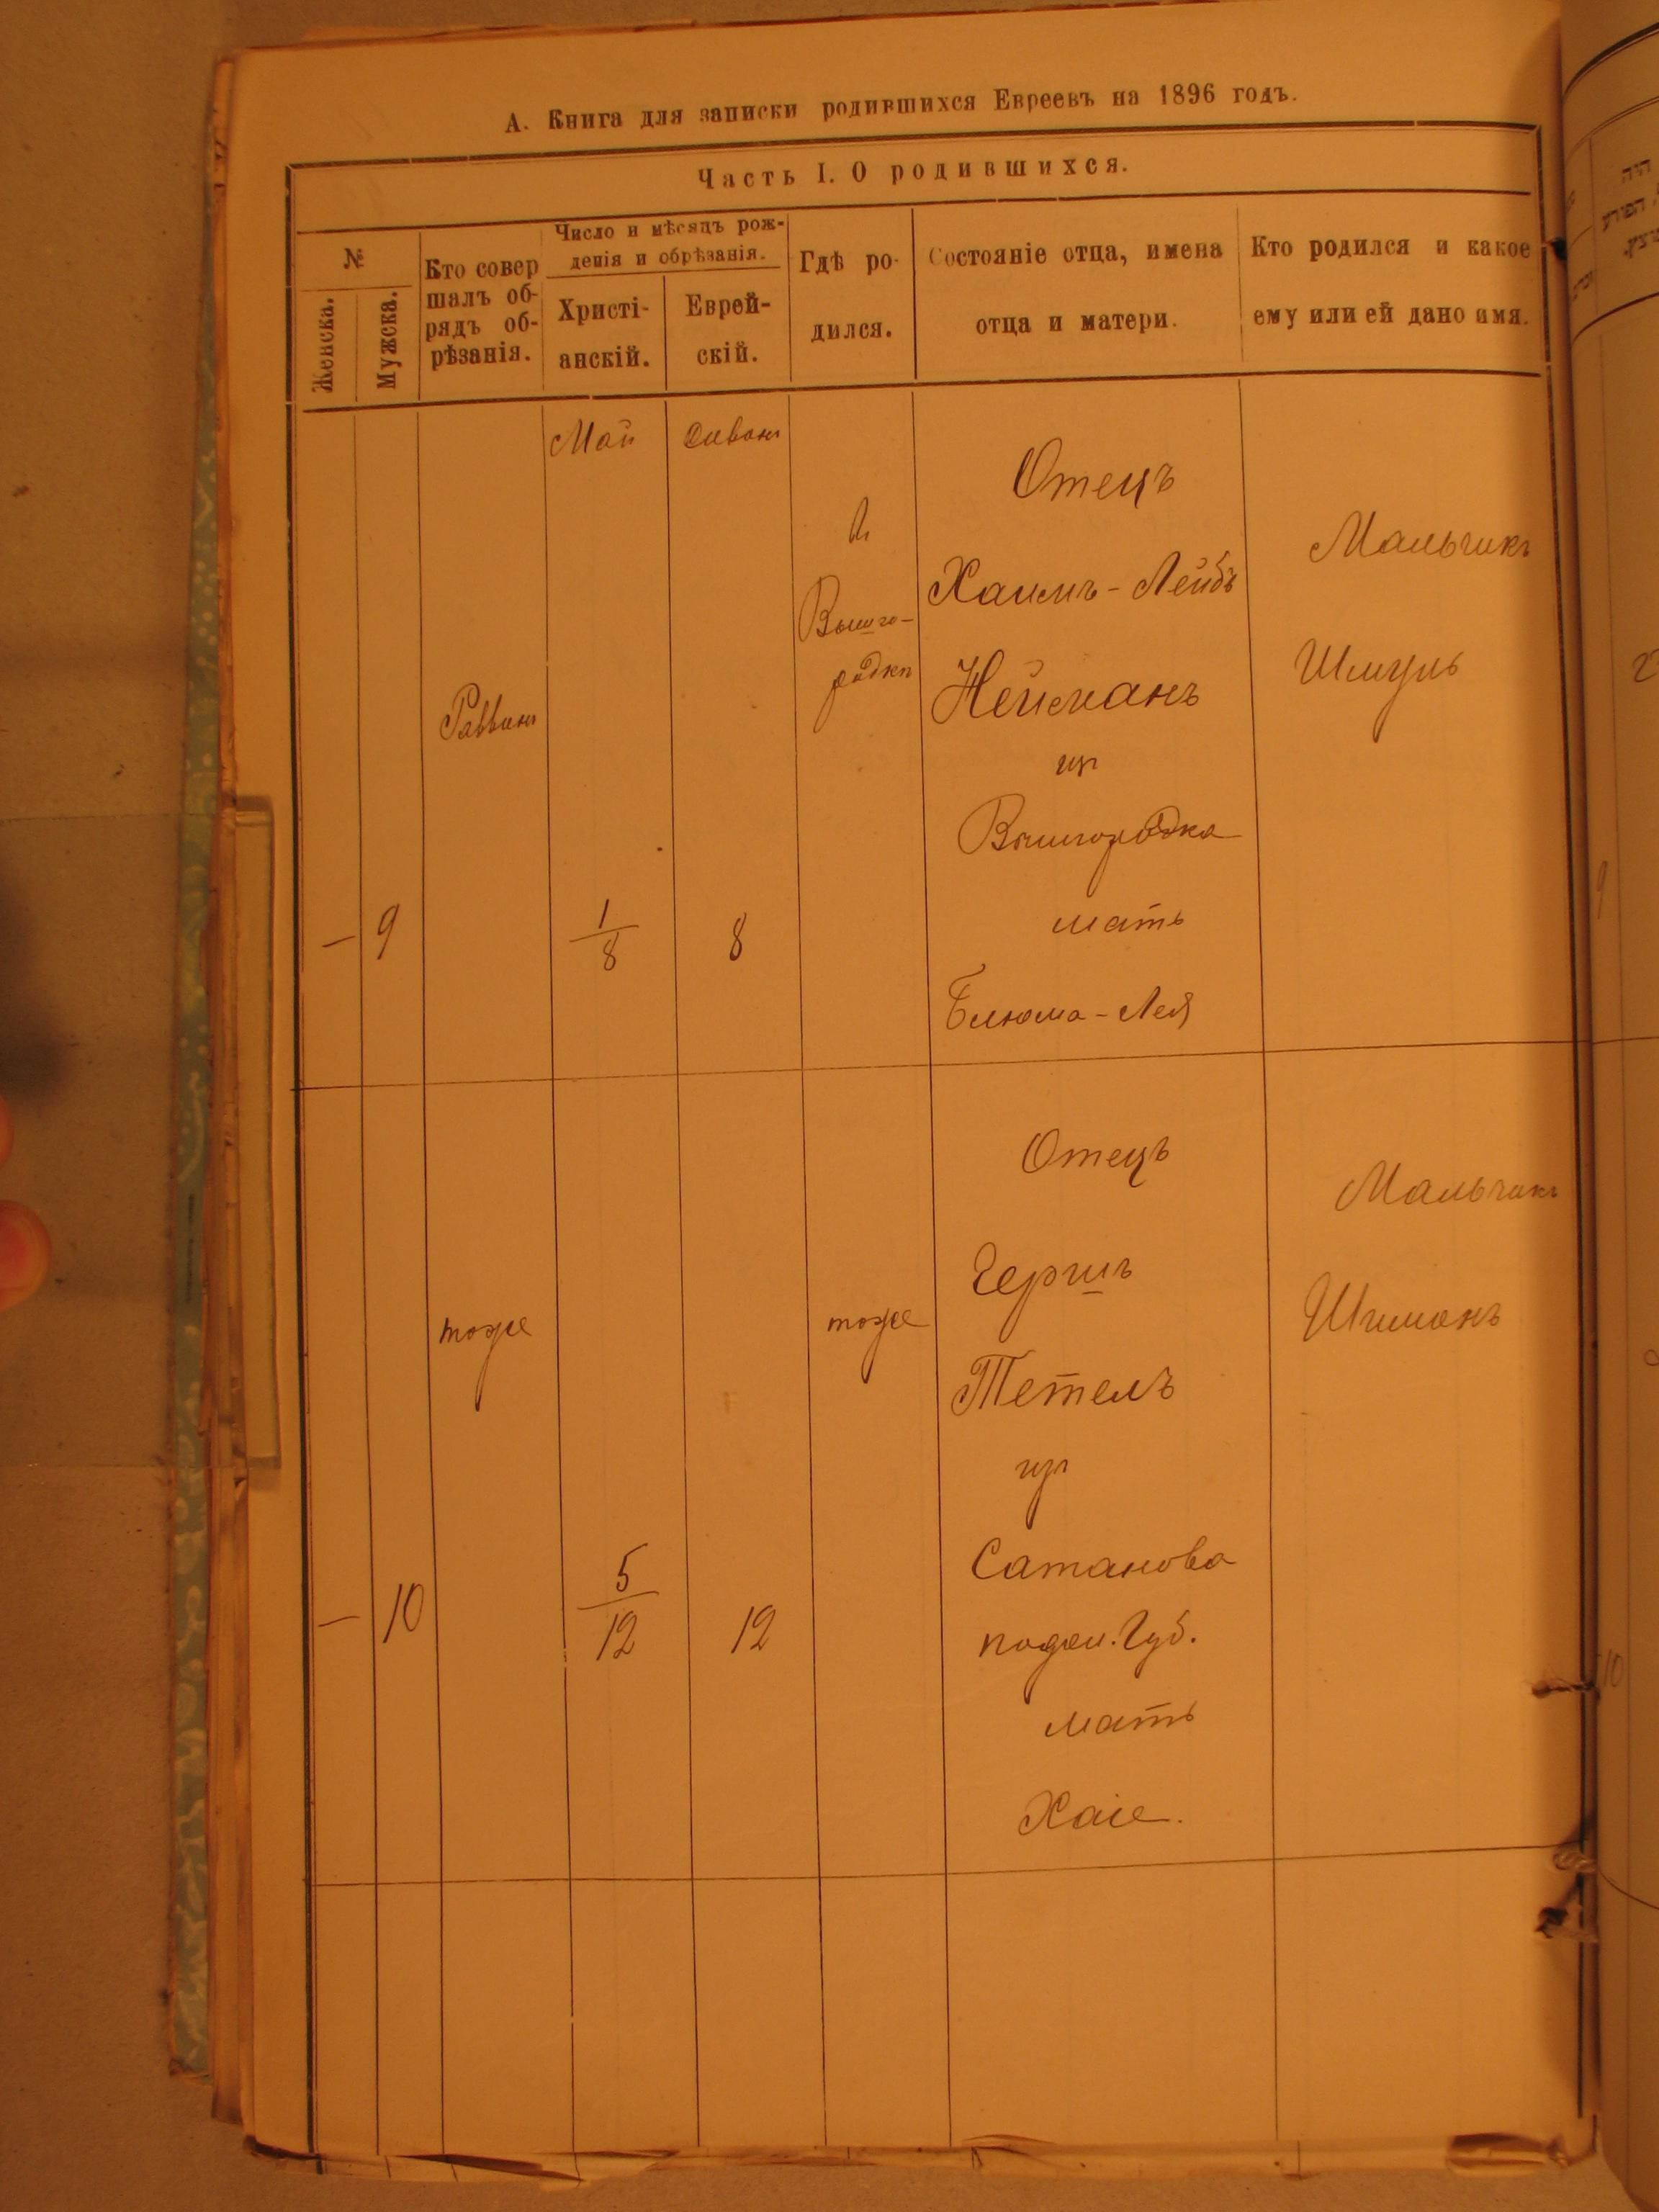 А. Книга для записки родившихся Евреевъ на 1896 годъ.
Часть I. О родившихся.
№
Женска.
Мужска.
Кто совер
шалъ об-
рядъ об-
рѣзанія.
Число и мѣсяцъ рож-
денія и обрѣзанія.
Христі-
анскій.
Еврей-
скій.
Гдѣ ро-
дился.
Состояніе отца, имена
отца и матери.
Кто родился и какое
ему или ей дано имя.
—
9
Раввинъ
Май
1
8
Сиванъ
8
в
Вышго-
родкѣ
Отецъ
Хаимъ-Лейбъ
Нейманъ
изъ
Вышгородка
мать
Блюма-Лея
Мальчикъ
Шмуль
—
10
тоже
5
12
12
тоже
Отецъ
Гершъ
Тетель
изъ
Сатанова
подол. Губ.
мать
Хаіе.
Мальчикъ
Шимонъ
9
10
היה